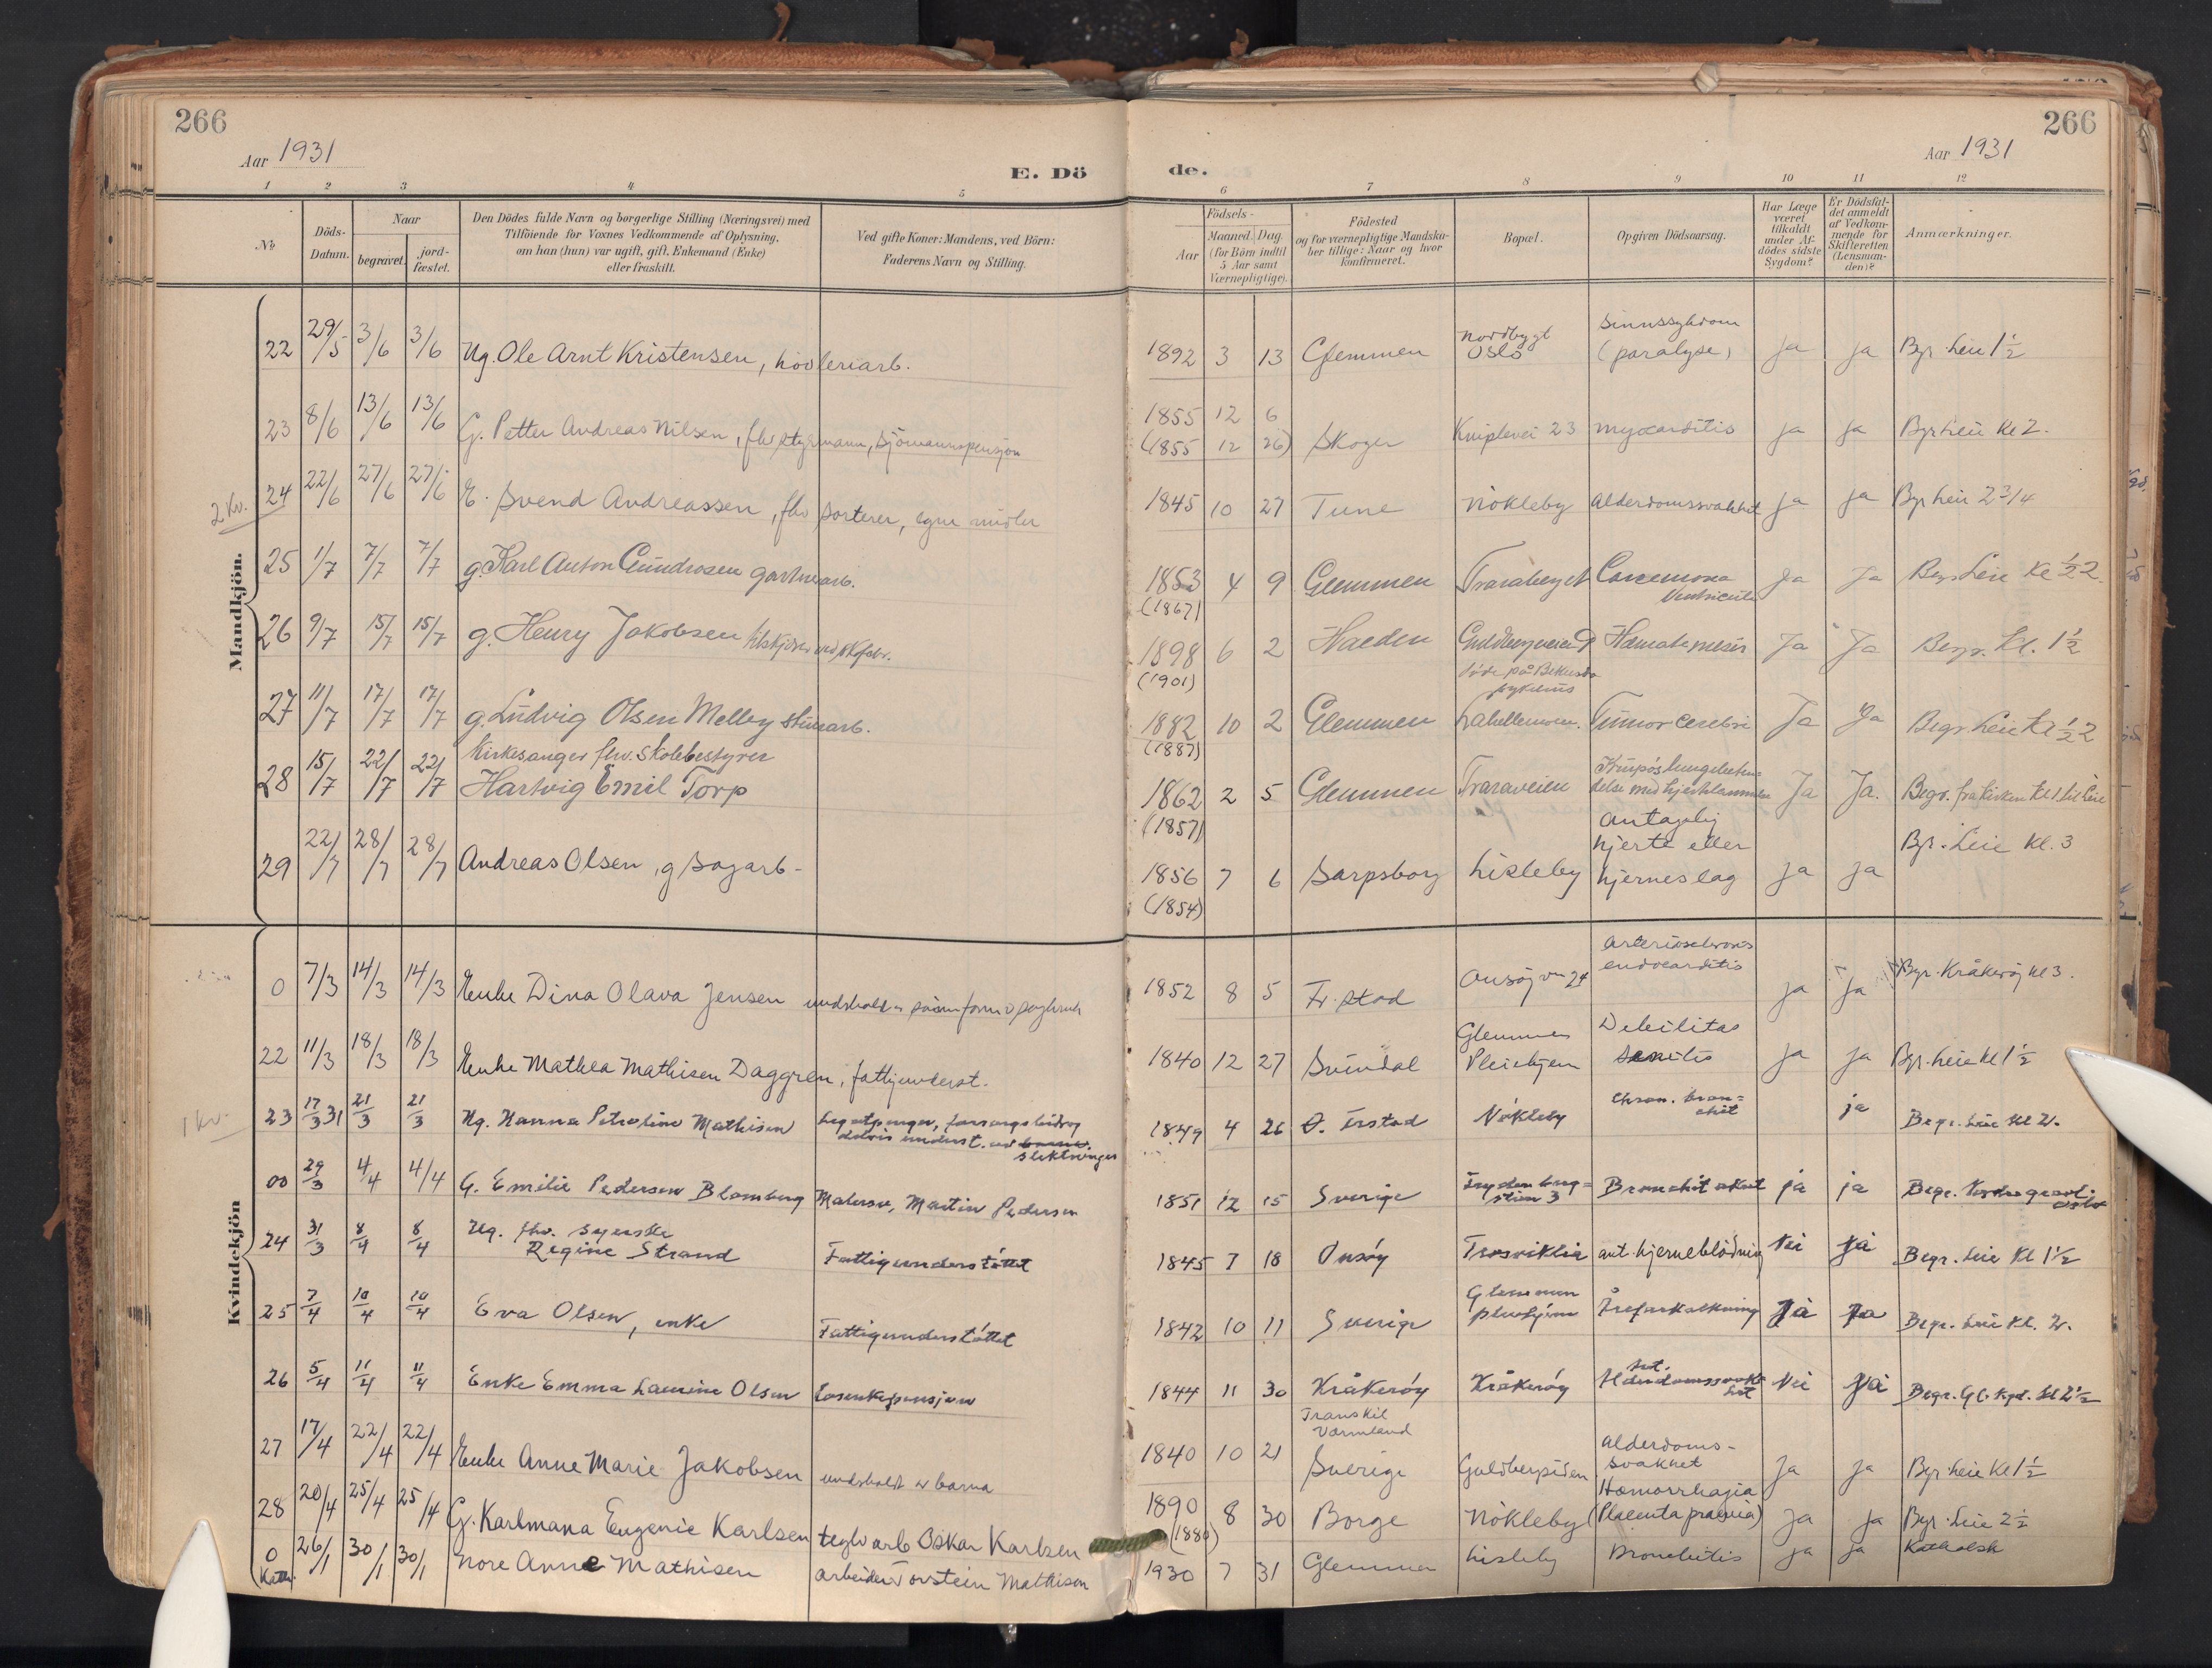 266
266
Aar 1931
Aar 1931
E. Dö
de.
1 2 3 4 5
6 7 8 9 10 11 12
No
Döds-
Datum.
Naar
begravet.
jord-
fæstet.
Den Dödes fulde Navn og borgerlige Stilling (Næringsvei) med
Tilföiende for Voxnes Vedkommende af Oplysning,
om han (hun) var ugift, gift, Enkemand (Enke)
eller fraskilt.
Ved gifte Koner: Mandens, ved Börn:
Faderens Navn og Stilling.
Födsels-
Aar
Maaned. Dag.
(for Börn indtil
5 Aar samt
Værnepligtige).
Födested
og for værnepligtige Mandska-
ber tillige: Naar og hvor
konfirmeret.
Bopæl.
Opgiven Dödsaarsag.
Har Læge
været
tilkaldt
under Af-
dödes sidste
Sygdom?
Er Dödsfal-
det anmeldt
af Vedkom-
mende for
Skifteretten
(Lensman-
den)?
Anmærkninger.
Mandkjön.
22 29/5 3/6 3/6 Ug. Ole Arnt Kristensen, høvleriarb. 1892 3 13 Glemmen Nordbygt Oslo Sinnssykdom (paralyse) Ja Ja Bgr. Leie 1½
23 8/6 13/6 13/6 G. Petter Andreas Nilsen, fhv styrmann, sjömannspensjon 1855 12 6 (1855 12 26) Skoger Kniplevei 23 myocarditis Ja Ja Bgr Leie kl 2.
2 Kv.
24 22/6 27/6 27/6 E. Svend Andreassen, fhv sorterer, egne midler 1845 10 27 Tune Nökleby Alderdomssvakhet Ja Ja Bgr Leie 2 3/4
25 1/7 7/7 7/7 g. Karl Anton Gundrosen gartnerarb. 1853 (1867) 4 9 Glemmen Traraberget Ja Ja Begr Leie Kl ½2.
26 9/7 15/7 15/7 g. Henry Jakobsen 1898 (1901) 6 2 Hæmatemesis Ja Ja Begr. Kl. 1½
27 11/7 17/7 17/7 g. Ludvig Olsen Melby stenarb. 1882 (1887) 10 2 Glemmen Tumor cerebri Ja Ja Begr. Leie Kl ½2
28 15/7 22/7 22/7 Kirkesanger fhv. Skolebestyrer
Hartvig Emil Torp 1862 (1857) 2 5 Glemmen Traraveien Ja Ja. Begr. fra kirken kl 1 til Leie
29 22/7 28/7 28/7 Andreas Olsen, g sagarb- 1856 (1854) 7 6 Sarpsborg Lisleby Antagelig hjerte eller hjerneslag Ja Ja Bgr. Leie Kl. 3
Kvindekjön
0 7/3 14/3 14/3 Enke Dina Olava Jensen 1852 8 5 Fr.stad Onsøyvn 24 Arteriosclerosis endocarditis Ja Ja Bgr. Kråkerøy kl 3.
22 11/3 18/3 18/3 Enke Mathea Mathisen Daggren, fattigunderst. 1840 12 27 Svindal Glemmen Pleiehjem Debilitas senilis Ja Ja Bgr. Leie kl 1½
1 kv.
23 17/3 31 21/3 21/3 Ug. Hanna Petroline Mathisen 1849 4 26 Nökleby chron. bron=chit ja Begr. Leie Kl 2.
00 29/3 4/4 4/4 G. Emilie Pedersen Blomberg Malersv. Martin Pedersen 1851 12 15 Sverige Frydenberg=stien 3 Bronchit akut ja ja
24 31/3 8/4 8/4 Ug. fhv. syerske
Regine Strand Fattigunderstöttet 1845 7 18 Onsöy Trosviklia ant. hjerneblödning Nei ja Begr. Leie Kl 1½
25 7/4 10/4 10/4 Eva Olsen, enke Fattigunderstöttet 1842 10 11 Sverige Glemmen pleiehjem Åreforkalkning Ja Ja Begr. Leie Kl. 2.
26 5/4 11/4 11/4 Enke Emma Laurine Olsen Losenkepensjon 1844 11 30 Kråkeröy Kråkeröy Alderdomssvakhet Nei Ja Begr. Gl. Kgd. Kl 2½
27 17/4 22/4 22/4 Enke Anne Marie Jakobsen undsholdt av barna 1840 10 21 Transkil Varmland Sverige Alderdoms-svakhet Ja Ja Bgr. Leie Kl 1½
28 20/4 25/4 25/4 G. Karlmana Eugenie Karlsen teglv arb Oskar Karlsen 1890 8 30 Borge Nökleby Hæmorrhagia (Placenta prævia) Ja Ja Bgr. Leie 2½
0 Kath. 26/1 30/1 30/1 Nore Anne Mathisen arbeider Torstein Mathisen 1930 7 31 Glemmen Lisleby Bronchitis Ja Ja Katholsk